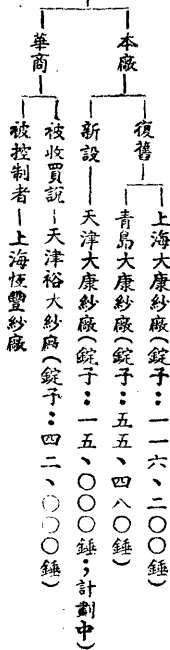 本廠
復舊
上海大康紗廠(錠子：一一六、二〇〇錘)
青島大康紗廠(錠子：五五、四八〇錘)
新設
天津大康紗廠(錠子：一五、〇〇〇錘；計劃中)
華商
被收買說
天津裕大紗廠(錠子：四二、〇〇〇錘)
被控制者
上海恆豐紗廠